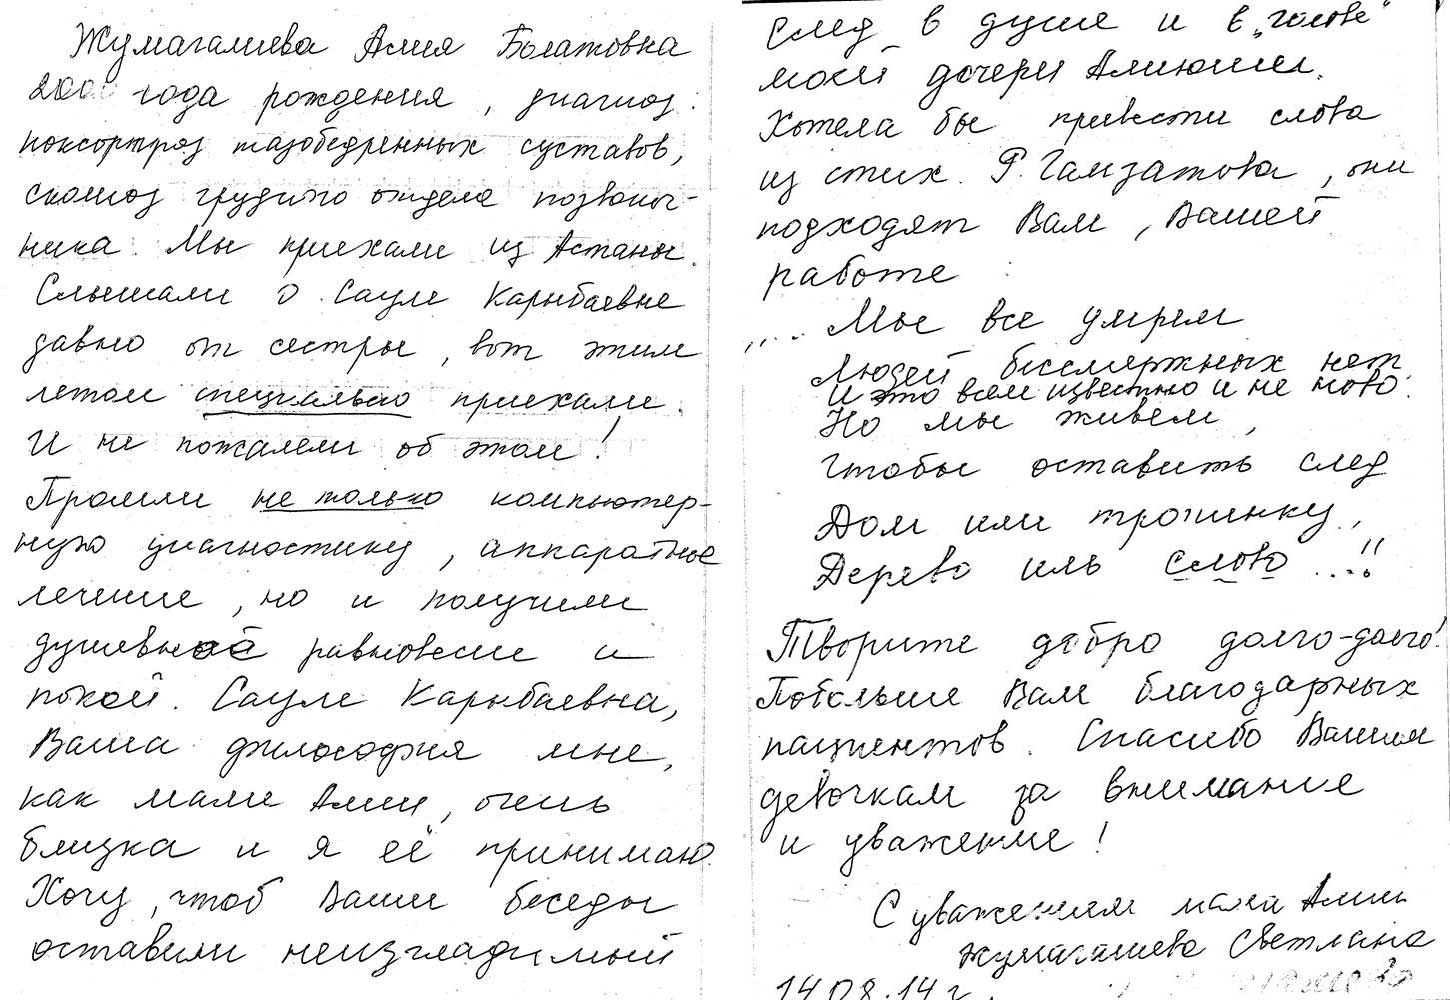 Жумагалиева Алия Болатовна
года рождения, диагноз:
коксартроз тазобедренных суставов,
сколиоз грудного отдела позвоноч-
ника. Мы приехали из Астаны.
Слышали о Сауле Карибаевне
давно от сестры, вот этим
летом специально приехали.
И не пожалели об этом!
Прошли не только компьютер-
ную диагностику, аппаратное
лечение, но и получили
душевное равновесие и
покой. Сауле Карибаевна,
Ваша философия мне,
как маме Алии, очень
близка и я её принимаю.
Хочу, чтоб Ваши беседы
оставили неизгладимый
след в душе и в "голове"
моей дочери Алиюши.
Хотела бы привести слова
из стих. Р. Гамзатова, они
подходят Вам, Вашей
работе:
"... Мы все умрем
Людей бессмертных нет
И это всем известно и не ново.
Но мы живем,
Чтобы оставить след
Дом или тропинку,
Дерево иль слово ...!!
Творите добро долго-долго!
Побольше Вам благодарных
пациентов. Спасибо Вашим
девочкам за внимание
и уважение!
С уважением мама Алии
Жумагалиева Светлана
14.08.14 г.